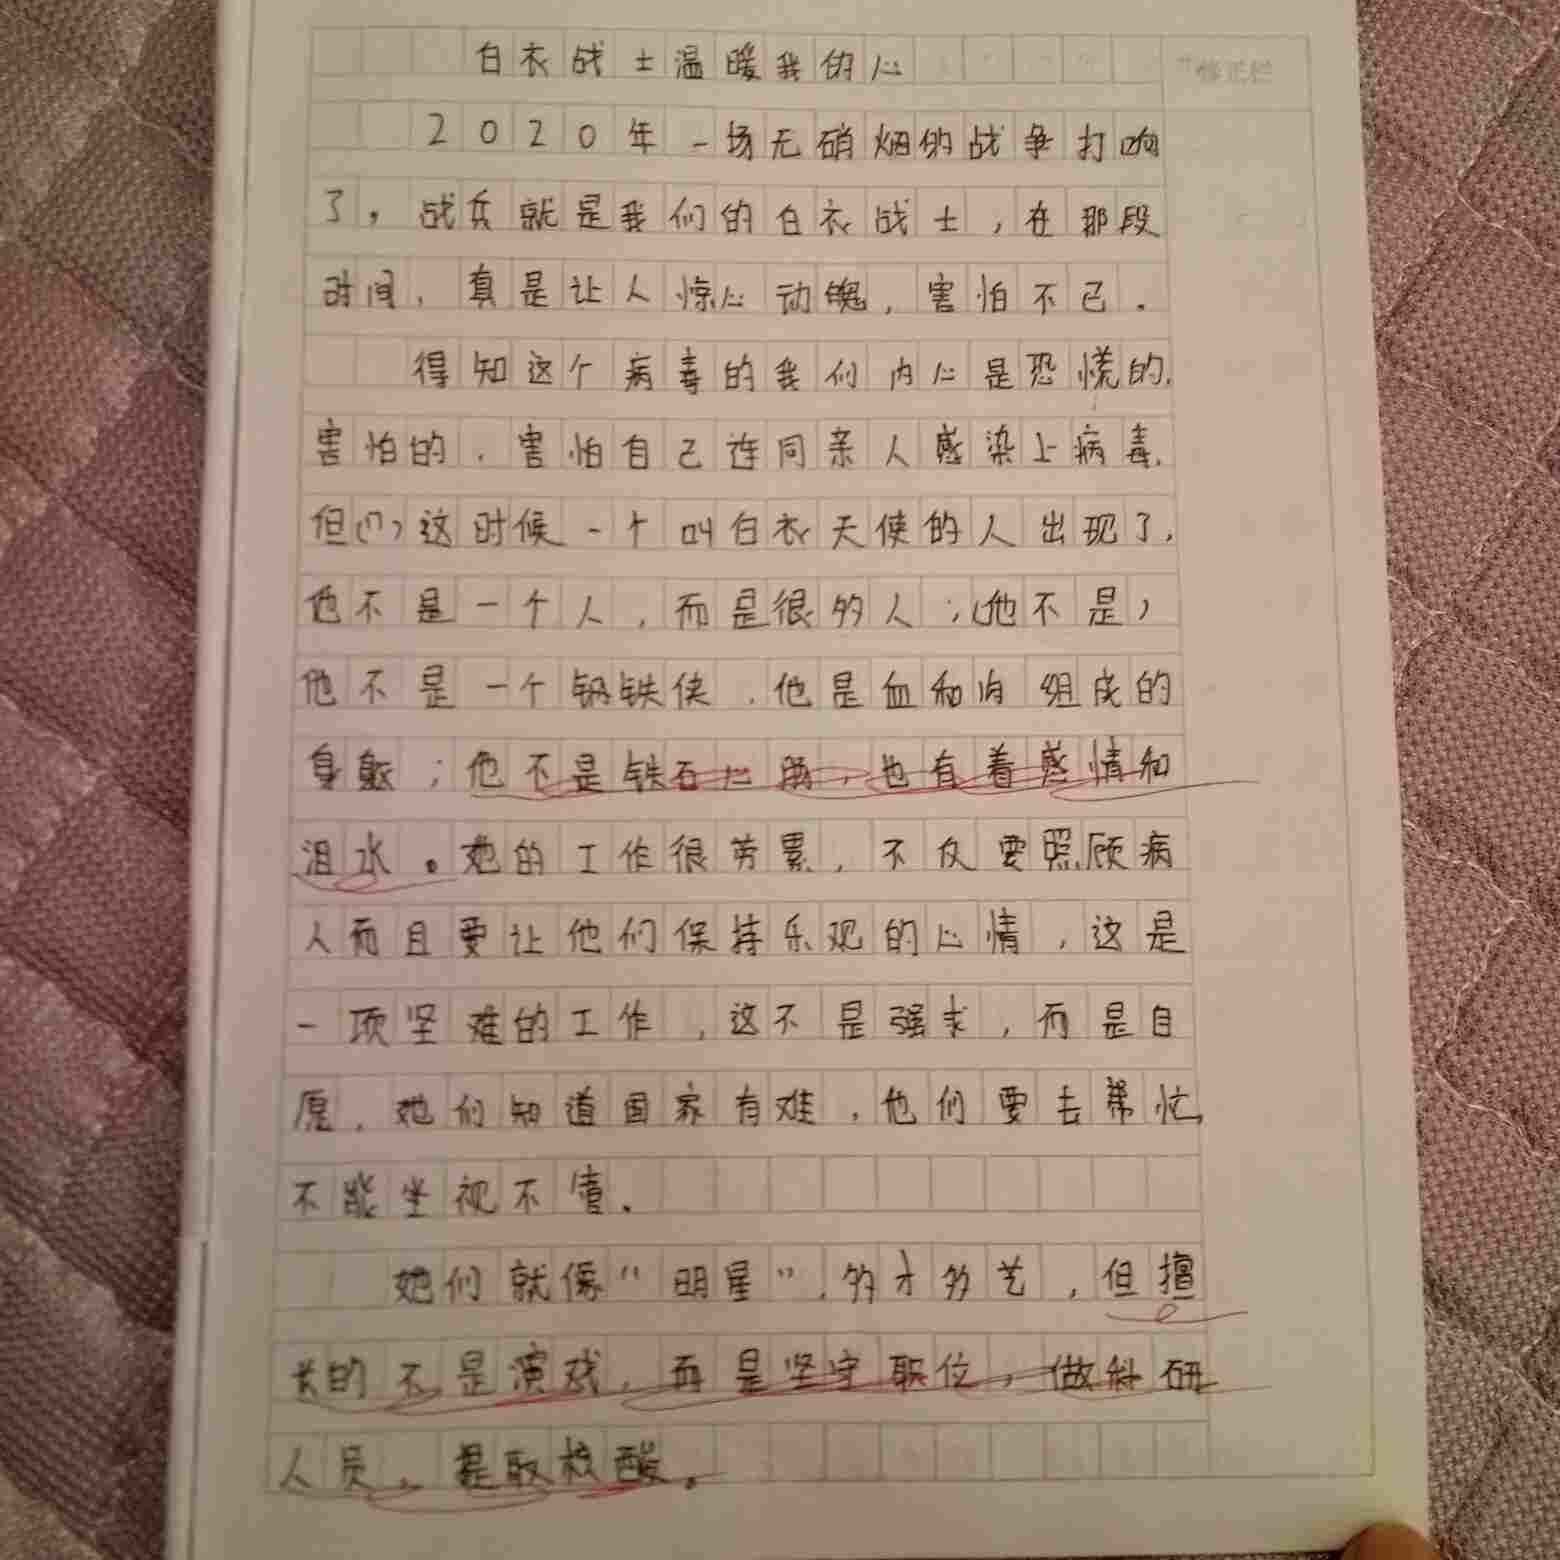 白衣战士温暖我的心
修正栏
2020年一场无硝烟的战争打响
了，战兵就是我们的白衣战士，在那段
时间，真是让人惊心动魄，害怕不已．
得知这个病毒的我们内心是恐慌的，
害怕的．害怕自己连同亲人感染上病毒，
但(门)这时候一个叫白衣天使的人出现了，
他不是一个人，而是很多人；(他不是)
他不是一个钢铁侠．他是血和肉组成的
身躯；他不是铁石心肠，也有着感情和
泪水。她的工作很劳累，不仅要照顾病
人而且要让他们保持乐观的心情，这是
一项坚难的工作，这不是强求，而是自
愿．她们知道国家有难，他们要去帮忙，
不能坐视不管．
她们就像“明星”，多才多艺，但擅
长的不是演戏，而是坚守职位，做科研
人员，提取核酸。